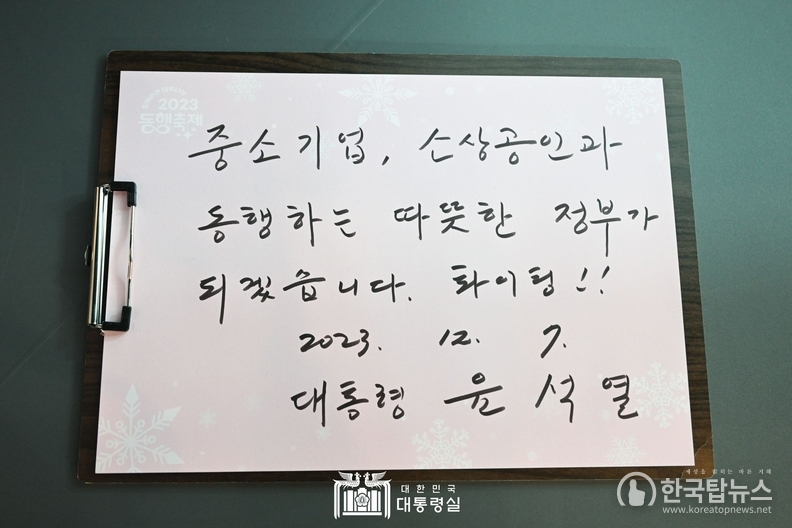 2023
동행축제
중소기업, 소상공인과
동행하는 따뜻한 정부가
되겠습니다. 화이팅!!
2023. 12. 7.
대통령 윤석열
대한민국
대통령실
세상을 밝히는 바른 지혜
한국탑뉴스
www.koreatopnews.net